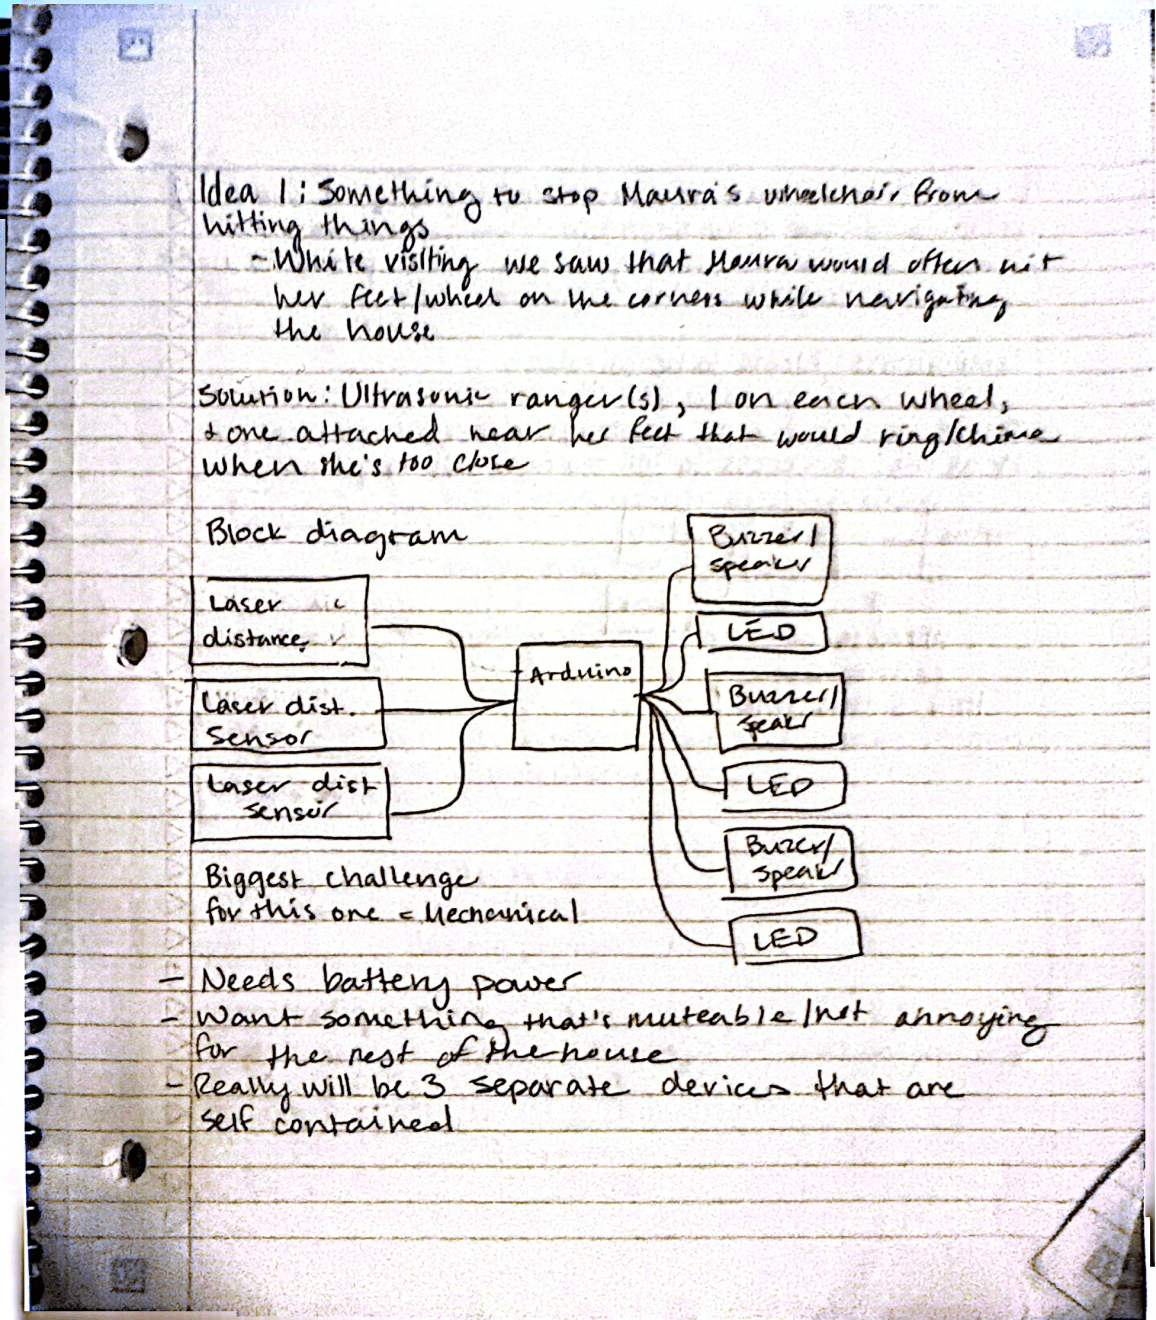 Idea 1: Something to stop Maura's wheelchair from
hitting things
- While visiting we saw that Maura would often hit
her feet/wheel on the corners while navigating
the house
Solution: Ultrasonic ranger(s), 1 on each wheel,
+ one attached near her feet that would ring/chime
when she's too close
Block diagram
Laser
distance
Laser dist.
sensor
Laser dist
sensor
Arduino
Buzzer/
speaker
LED
Buzzer/
speakr
LED
Buzzer/
speakr
LED
Biggest challenge
for this one = Mechanical
- Needs battery power
- Want something that's muteable/not annoying
for the rest of the house
- Really will be 3 separate devices that are
self contained